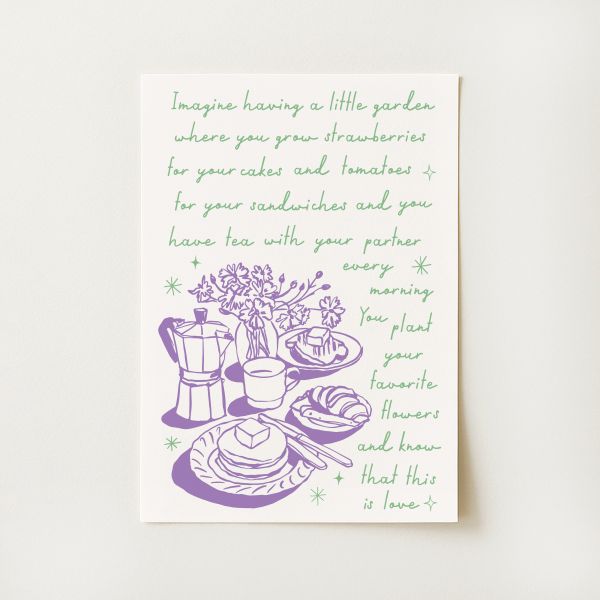 Imagine having a little garden
where you grow strawberries
for your cakes and tomatoes
for your sandwiches and you
have tea with your partner
every
morning
You plant
your
favorite
flowers
and know
that this
is love